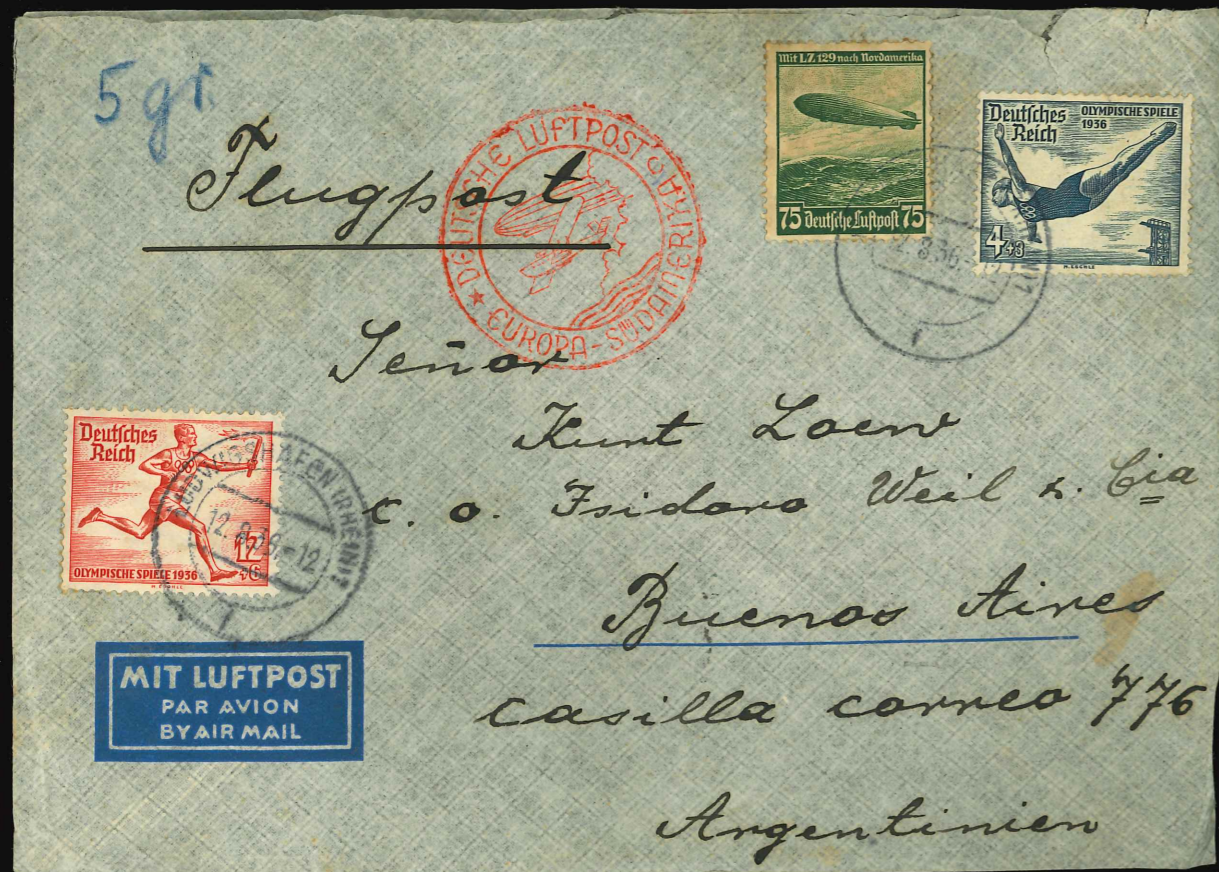 5 gr.
Flugpost
DEUTSCHE LUFTPOST
EUROPA-SÜDAMERIKA
Mit LZ 129 nach Nordamerika
75 Deutsche Luftpost 75
Deutsches
Reich
OLYMPISCHE SPIELE
1936
4+3
M. ESCHLE
Señor
Kurt Loew
c. o. Isidoro Weil & Cia
Buenos Aires
casilla correo 776
Argentinien
Deutsches
Reich
12
+6
OLYMPISCHE SPIELE 1936
M. ESCHLE
LUDWIGSHAFEN (RHEIN) 2
12.8.36.-12
MIT LUFTPOST
PAR AVION
BY AIR MAIL